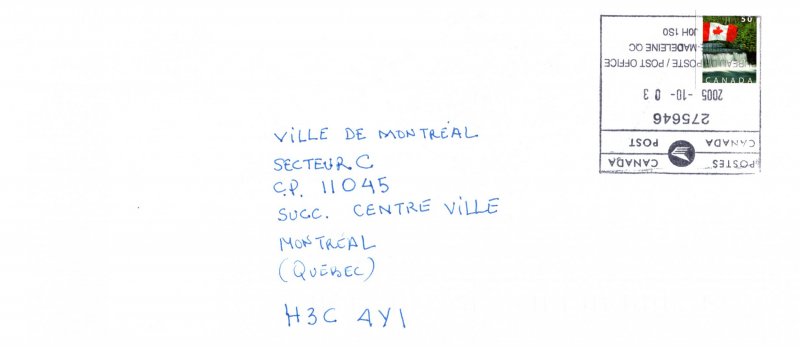 50
CANADA
J0H 1S0
-MADELEINE QC
BUREAU DE POSTE / POST OFFICE
2005 -10- 03
275646
CANADA POST
POSTES CANADA
VILLE DE MONTRÉAL
SECTEUR C
C.P. 11045
SUCC. CENTRE VILLE
MONTRÉAL
(QUÉBEC)
H3C 4Y1